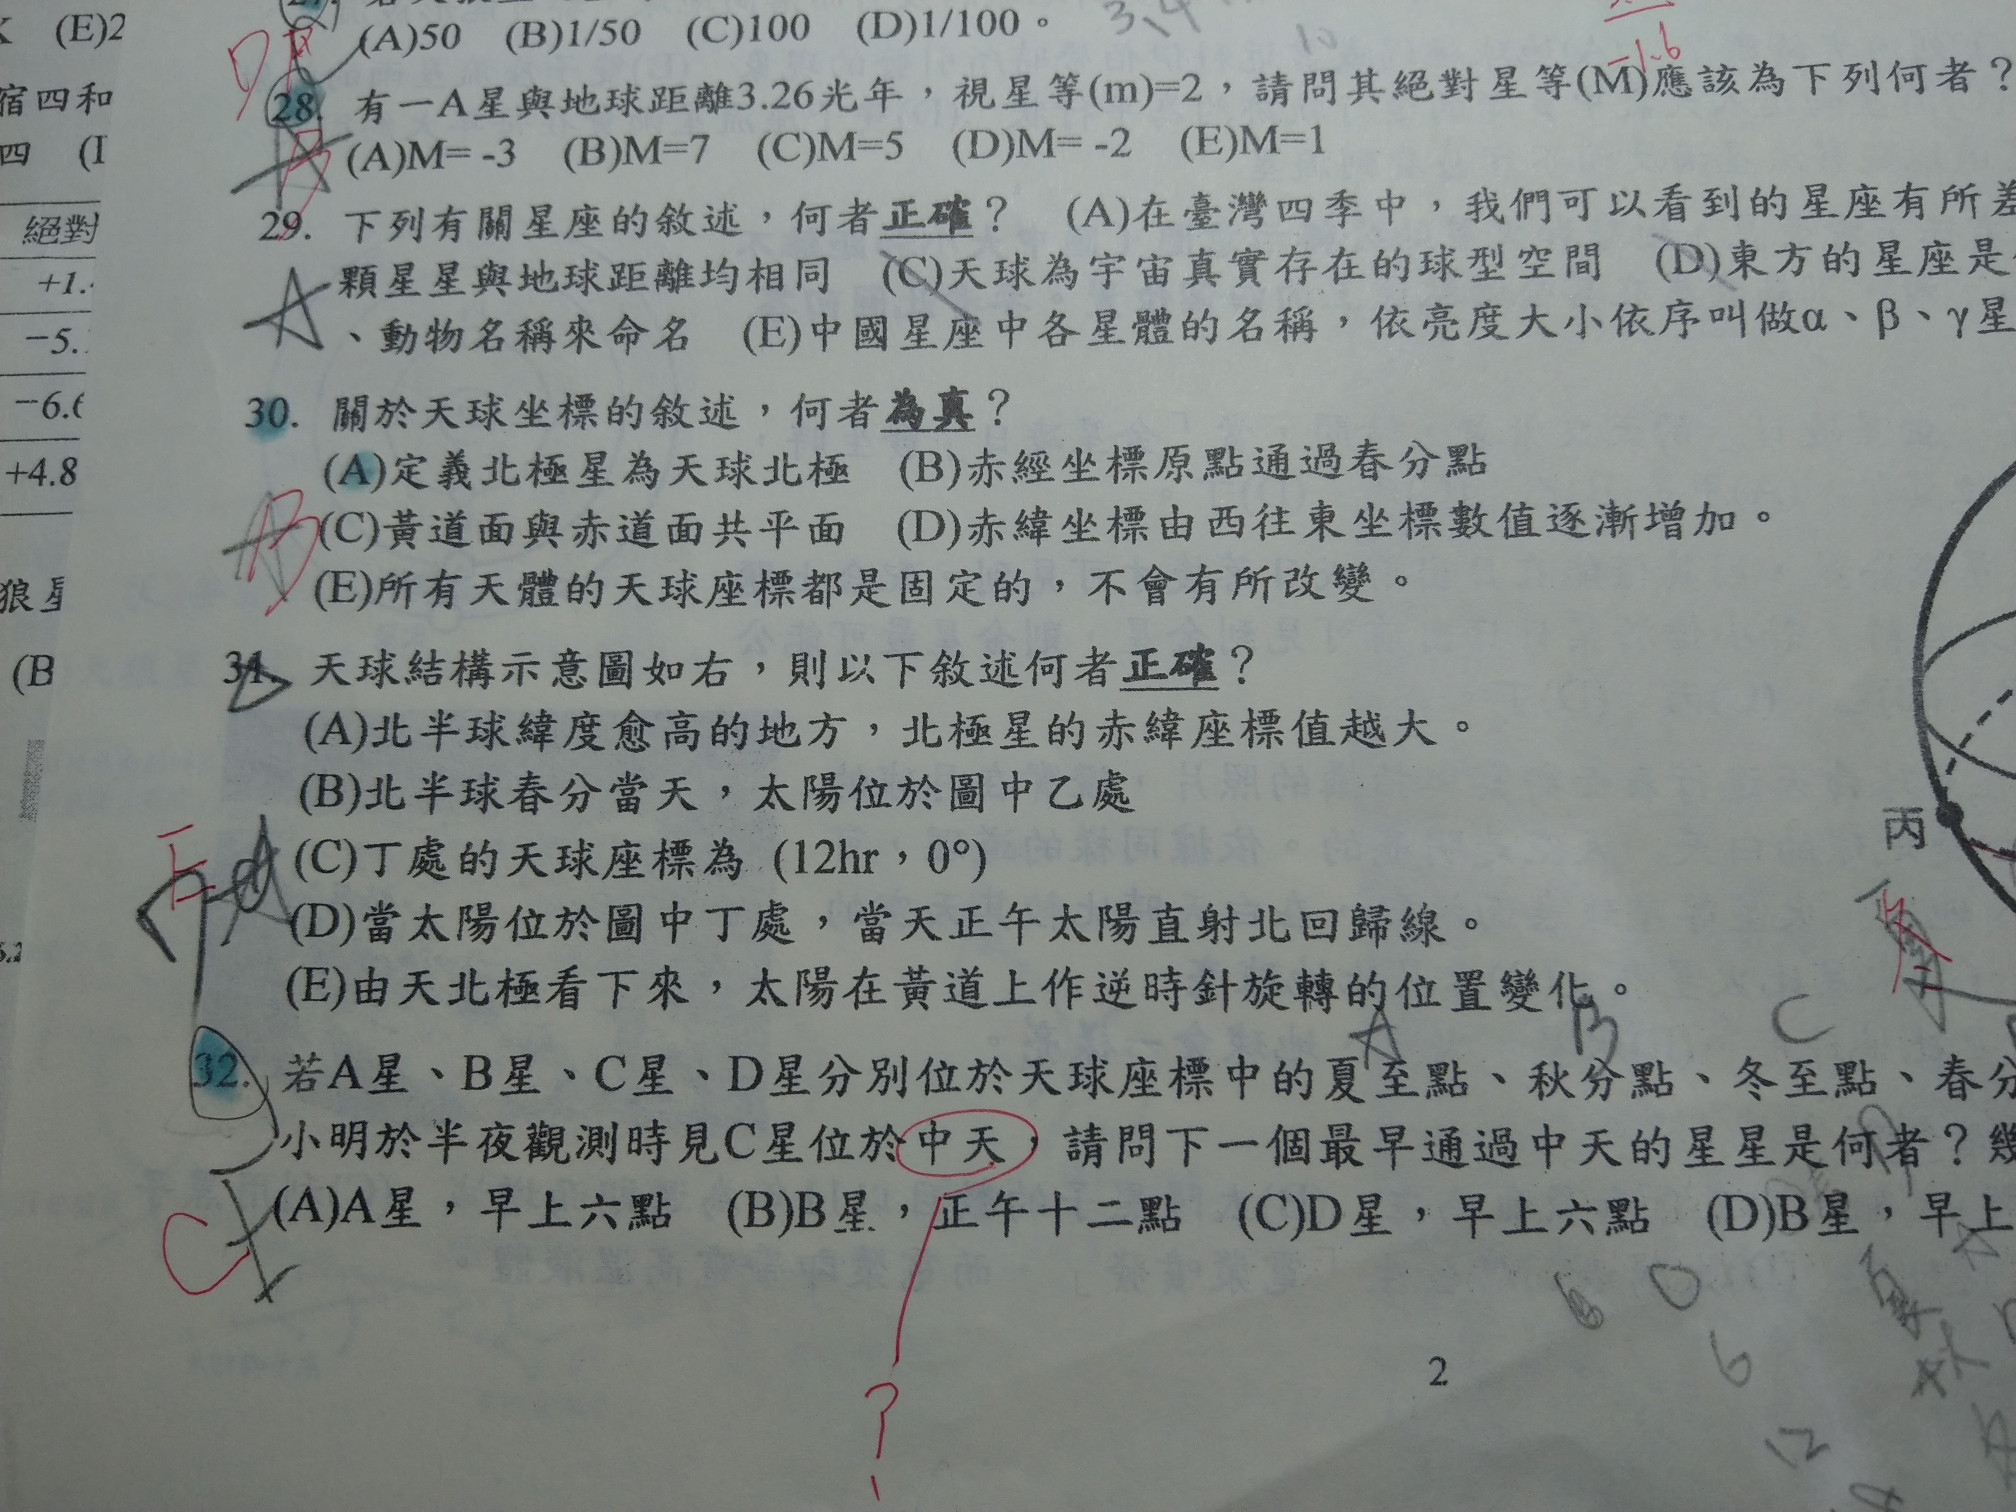 (E)2
(A)50 (B)1/50 (C)100 (D)1/100。
3、4
10
-1.6
宿四和
28. 有一A星與地球距離3.26光年，視星等(m)=2，請問其絕對星等(M)應該為下列何者？
四
(A)M= -3 (B)M=7 (C)M=5 (D)M= -2 (E)M=1
B
絕對
29. 下列有關星座的敘述，何者正確？ (A)在臺灣四季中，我們可以看到的星座有所差
+1.
A
顆星星與地球距離均相同 (C)天球為宇宙真實存在的球型空間 (D)東方的星座是
−5.
、動物名稱來命名 (E)中國星座中各星體的名稱，依亮度大小依序叫做α、β、γ星
−6.6
30. 關於天球坐標的敘述，何者為真？
+4.8
(A)定義北極星為天球北極 (B)赤經坐標原點通過春分點
B
(C)黃道面與赤道面共平面 (D)赤緯坐標由西往東坐標數值逐漸增加。
狼星
(E)所有天體的天球座標都是固定的，不會有所改變。
(B
31. 天球結構示意圖如右，則以下敘述何者正確？
(A)北半球緯度愈高的地方，北極星的赤緯座標值越大。
(B)北半球春分當天，太陽位於圖中乙處
丙
E
(C)丁處的天球座標為 (12hr，0°)
(D)當太陽位於圖中丁處，當天正午太陽直射北回歸線。
(E)由天北極看下來，太陽在黃道上作逆時針旋轉的位置變化。
A B C
32. 若A星、B星、C星、D星分別位於天球座標中的夏至點、秋分點、冬至點、春分
小明於半夜觀測時見C星位於中天，請問下一個最早通過中天的星星是何者？幾
(A)A星，早上六點 (B)B星，正午十二點 (C)D星，早上六點 (D)B星，早上
C
6 0
夏
6
秋
2
?
12